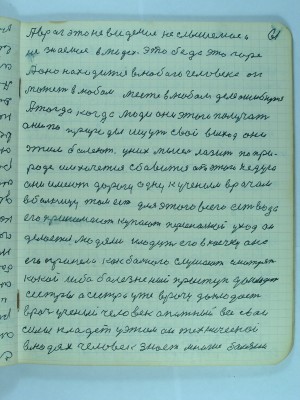 61
А враг это не видения не слышемась
не знаемся в людях. Это беда это горе
А оно находится в любого человека он
может в любом месте в любом деле ошибнутся
А тогда когда люди они этого получат
они по природе ищут свой выход они
этим болеют, у них мысел лазит по при-
роде им хочется сбавится от этого недуга
они имеют дорогу одну к ученым врачам
в больницу там ест для этого всего ест вода
его принимают купают перепалной уход он
делается людям кладут его в коечку ано
его приняло как больного слушают смотрят
какой либо болезнений приступ докладут
сестры а сестры уже врачу докладают
врач учений человек апатний все свои
силы кладет у этом он технической
в людях человек знает многие болезни